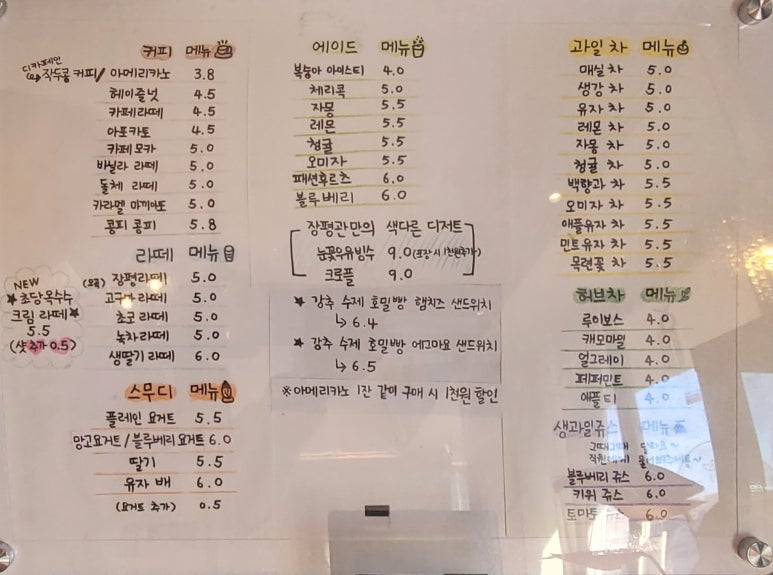 커피 메뉴
디카페인
작두콩 커피 / 아메리카노 3.8
헤이즐넛 4.5
카페라떼 4.5
아포카토 4.5
카페모카 5.0
바닐라 라떼 5.0
돌체 라떼 5.0
카라멜 마끼아또 5.0
콩피 콩피 5.8
라떼 메뉴
장평라떼 5.0
고구마 라떼 5.0
초코 라떼 5.0
녹차 라떼 5.0
생딸기 라떼 6.0
NEW
★ 초당옥수수
크림 라떼 ★
5.5
(샷 추가 0.5)
스무디 메뉴
플레인 요거트 5.5
망고요거트 / 블루베리 요거트 6.0
딸기 5.5
유자 배 6.0
(요거트 추가) 0.5
에이드 메뉴
복숭아 아이스티 4.0
체리콕 5.0
자몽 5.5
레몬 5.5
청귤 5.5
오미자 5.5
패션후르츠 6.0
블루베리 6.0
장평관만의 색다른 디저트
눈꽃우유빙수 9.0 (포장시 1천원추가)
크로플 9.0
★ 강추 수제 호밀빵 햄치즈 샌드위치
↳ 6.4
★ 강추 수제 호밀빵 에그마요 샌드위치
↳ 6.5
※아메리카노 1잔 같이 구매 시 1천원 할인
과일차 메뉴
매실 차 5.0
생강 차 5.0
유자 차 5.0
레몬 차 5.0
자몽 차 5.0
청귤 차 5.0
백향과 차 5.5
오미자 차 5.5
애플유자 차 5.5
민트유자 차 5.5
목련꽃 차 5.5
허브차 메뉴
루이보스 4.0
캐모마일 4.0
얼그레이 4.0
페퍼민트 4.0
애플티 4.0
생과일쥬스 메뉴
그때그때 달라요~
직원에게
블루베리 쥬스 6.0
키위 쥬스 6.0
토마토 쥬스 6.0